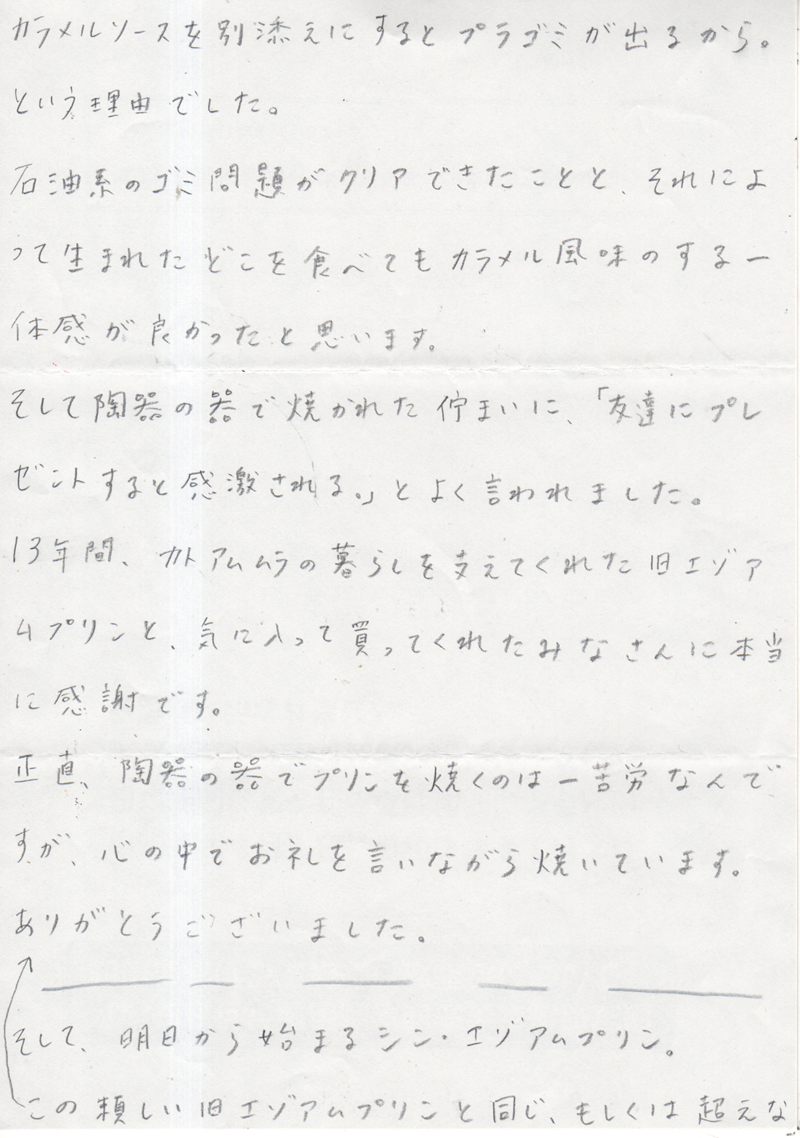 カラメルソースを別添えにするとプラゴミが出るから。
という理由でした。
石油系のゴミ問題がクリアできたことと、それによ
って生まれたどこを食べてもカラメル風味のする一
体感が良かったと思います。
そして陶器の器で焼かれた佇まいに、「友達にプレ
ゼントすると感激される。」とよく言われました。
13年間、カトアムムラの暮らしを支えてくれた旧エゾア
ムプリンと、気に入って買ってくれたみなさんに本当
に感謝です。
正直、陶器の器でプリンを焼くのは一苦労なんで
すが、心の中でお礼を言いながら焼いています。
ありがとうございました。
そして、明日から始まるシン・エゾアムプリン。
この頼しい旧エゾアムプリンと同じ、もしくは超えな